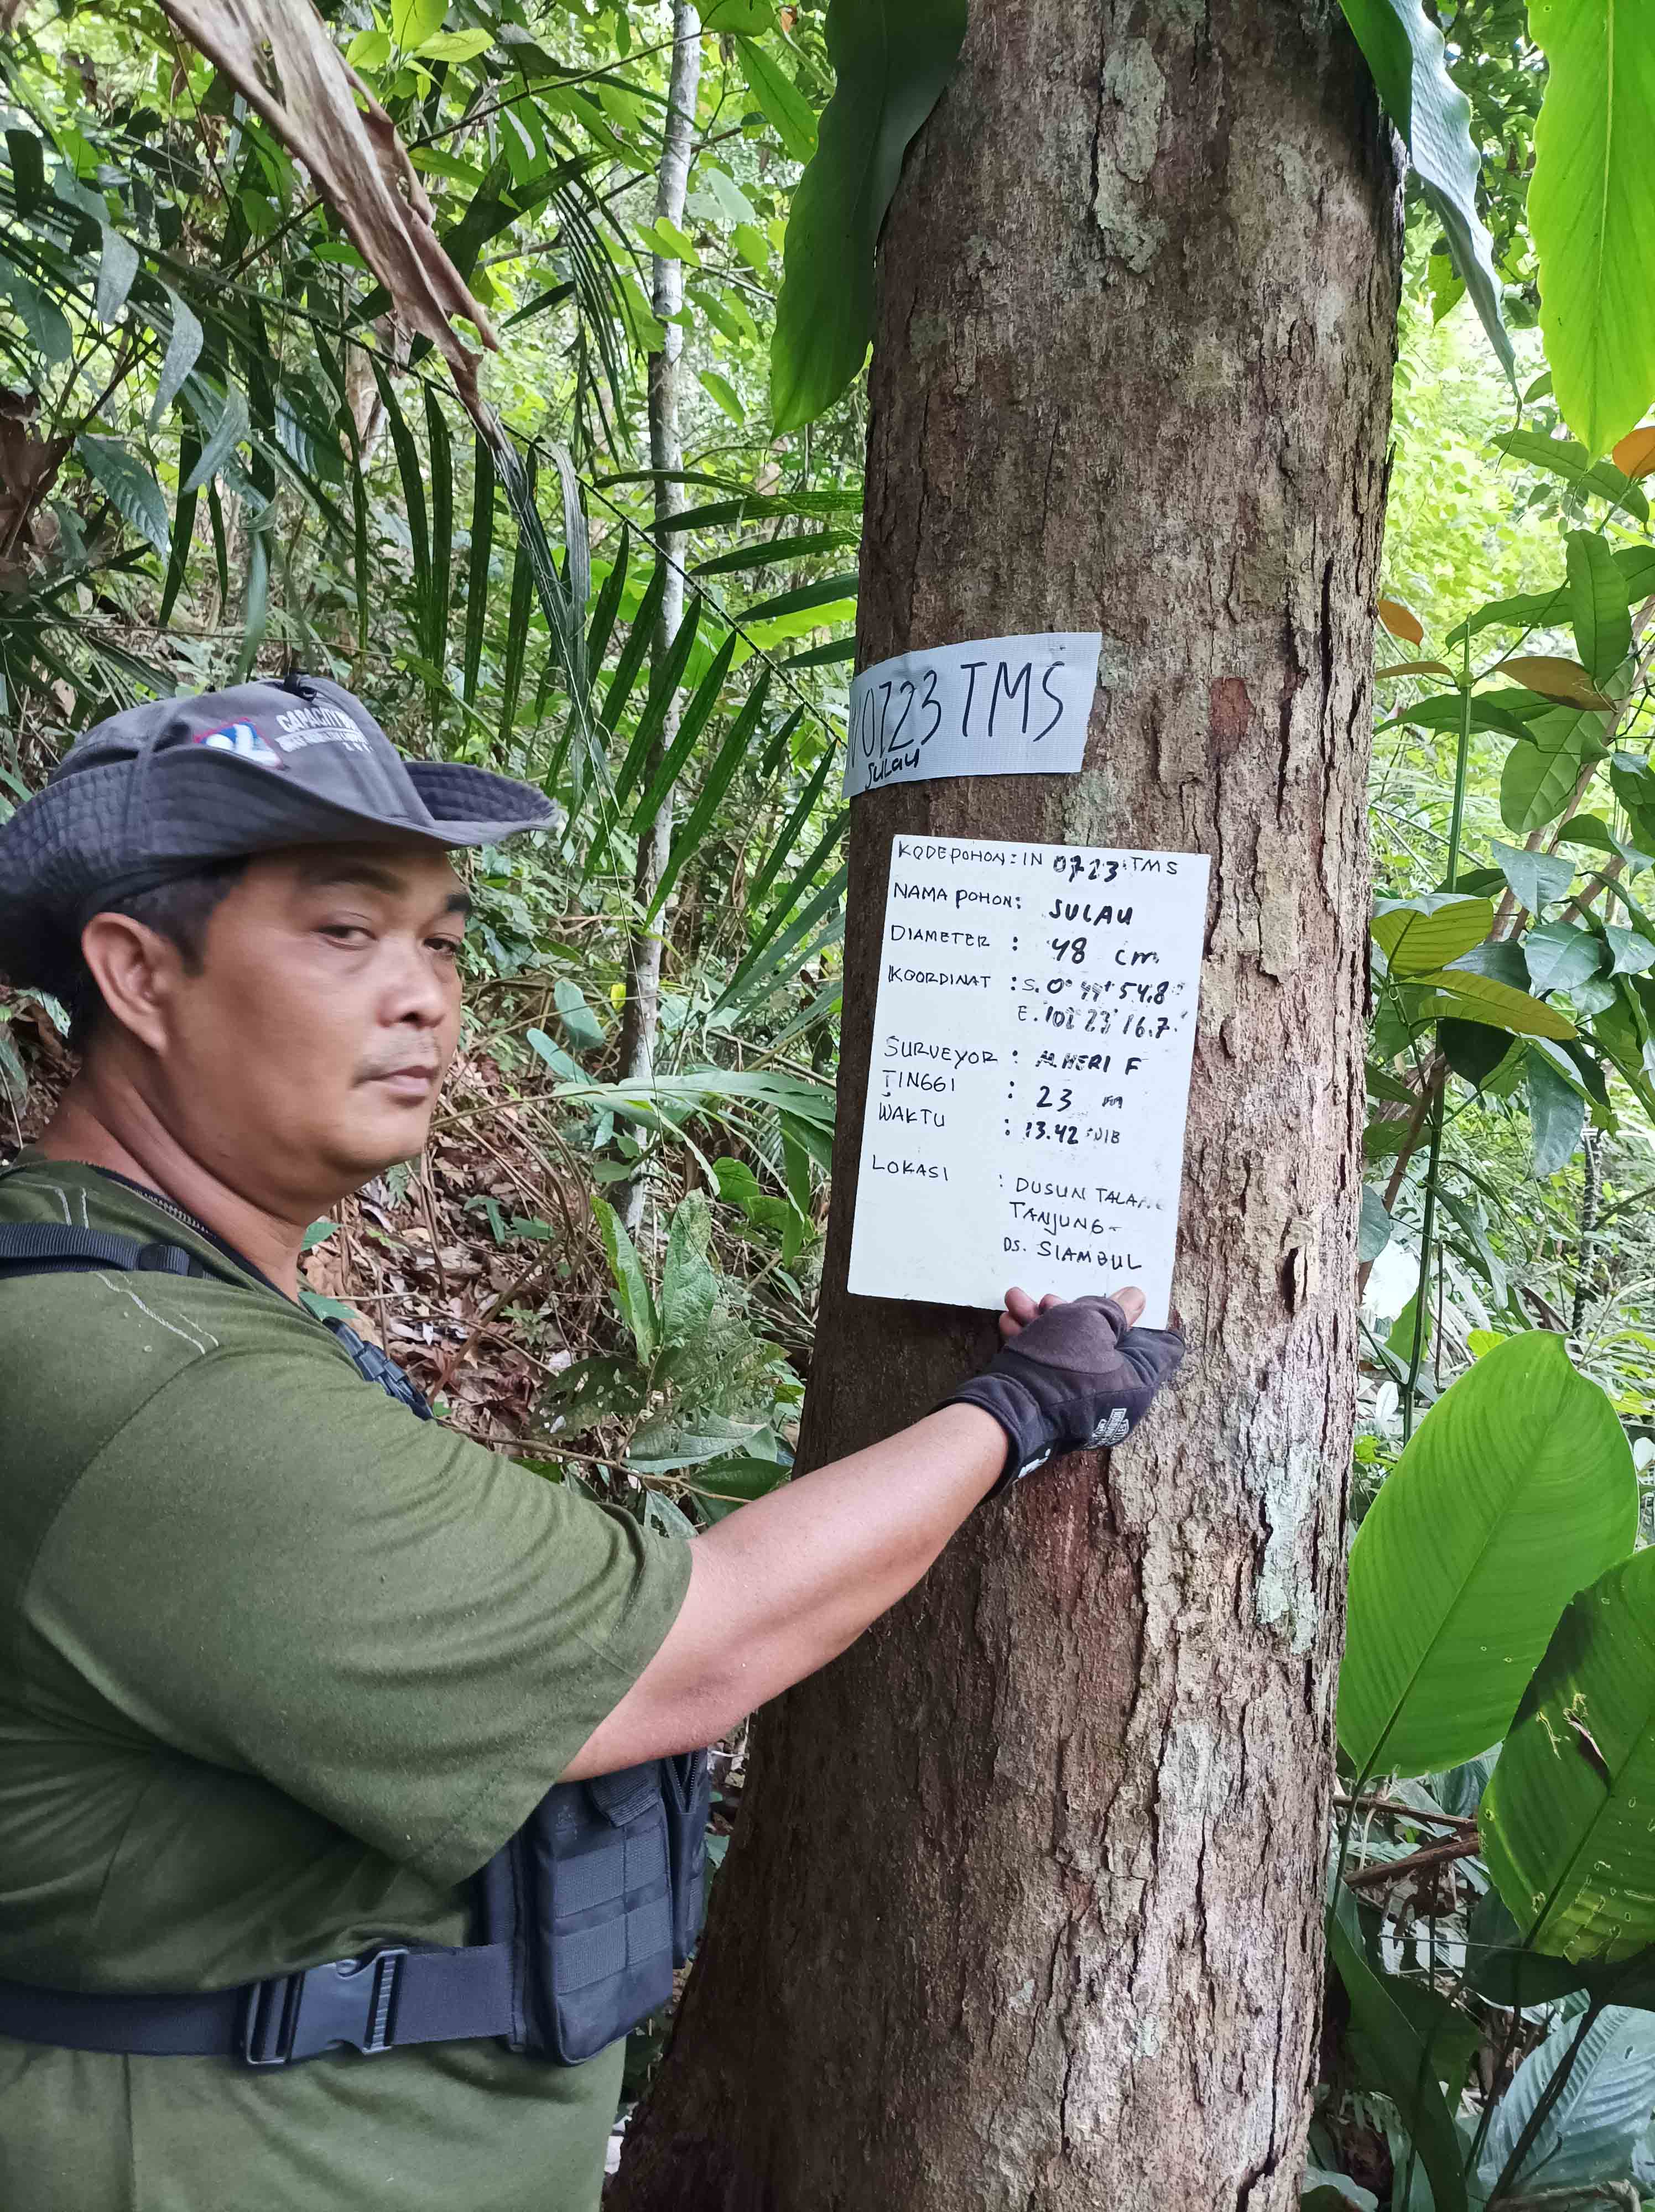 0723 TMS
SULAU
KODE POHON : IN 0723 TMS
NAMA POHON : SULAU
DIAMETER : 48 cm
KOORDINAT : S. 0° 54.8"
E. 101° 23' 16.7"
SURVEYOR : M. HERI F
TINGGI : 23 m
WAKTU : 13.42 WIB
LOKASI : DUSUN TALANG
TANJUNG
DS. SIAMBUL